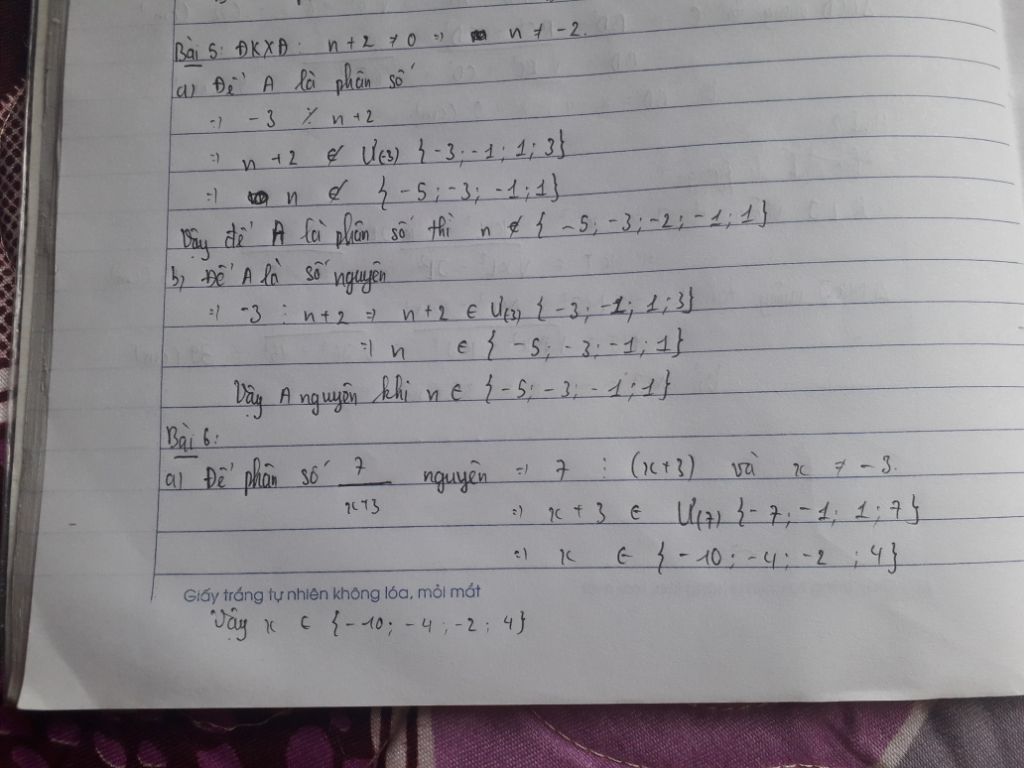 Bài 5: ĐKXĐ: n+2 ≠ 0 => n ≠ -2.
a) Để A là phân số
=> -3 ⋮̸ n+2
=> n+2 ∉ Ư(3) {-3;-1;1;3}
=> n ∉ {-5;-3;-1;1}
Vậy để A là phân số thì n ∉ {-5;-3;-2;-1;1}
b, Để A là số nguyên
=> -3 ⋮ n+2 => n+2 ∈ Ư(3) {-3;-1;1;3}
=> n ∈ {-5;-3;-1;1}
Vậy A nguyên khi n ∈ {-5;-3;-1;1}
Bài 6:
a) Để phân số 7/x+3 nguyên => 7 ⋮ (x+3) và x ≠ -3.
=> x+3 ∈ Ư(7) {-7;-1;1;7}
=> x ∈ {-10;-4;-2;4}
Giấy trắng tự nhiên không lóa, mỏi mắt
Vậy x ∈ {-10;-4;-2;4}